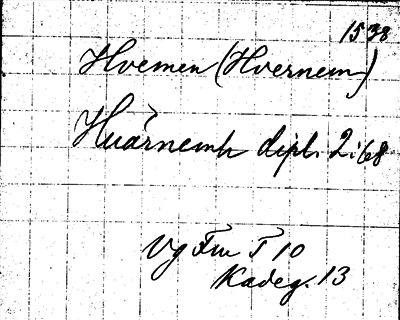 1538
Hvemen (Hvernem)
Huárnemh dipl. 2:68
Vg Fru T 10
Kadeg. 13